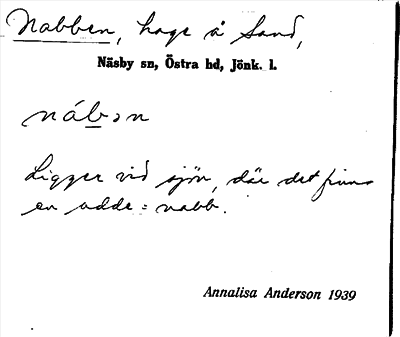 Nabben, hage å Sand,
Näsby sn, Östra hd, Jönk. l.
nábən
Ligger vid sjön, där det finns
en udde = nabb.
Annalisa Anderson 1939